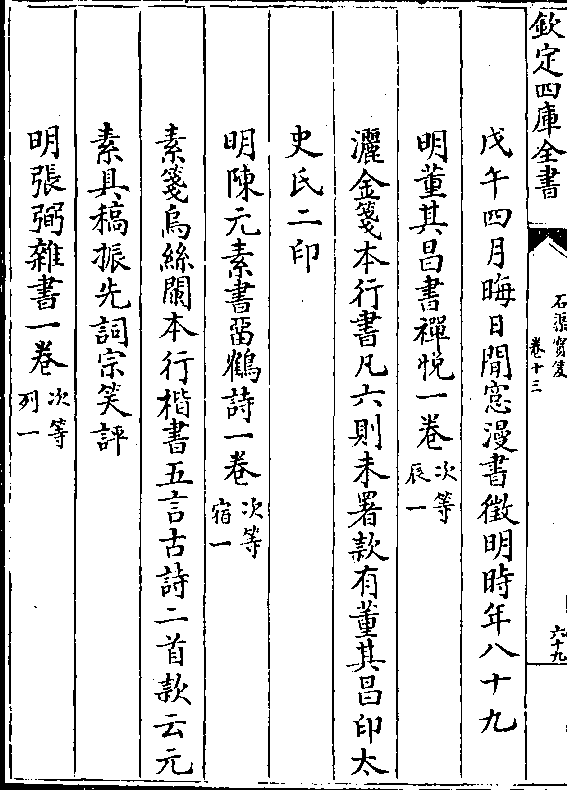 欽定四庫全書
石渠寶笈
卷十三
六十九
戊午四月晦日閒窓漫書徵明時年八十九
明董其昌書禪悅一卷 次等辰一
灑金箋本行書凡六則未署款有董其昌印太
史氏二印
明陳元素書畱鶴詩一卷 次等宿一
素箋烏絲闌本行楷書五言古詩二首款云元
素具稿振先詞宗笑評
明張弼雜書一卷 次等列一